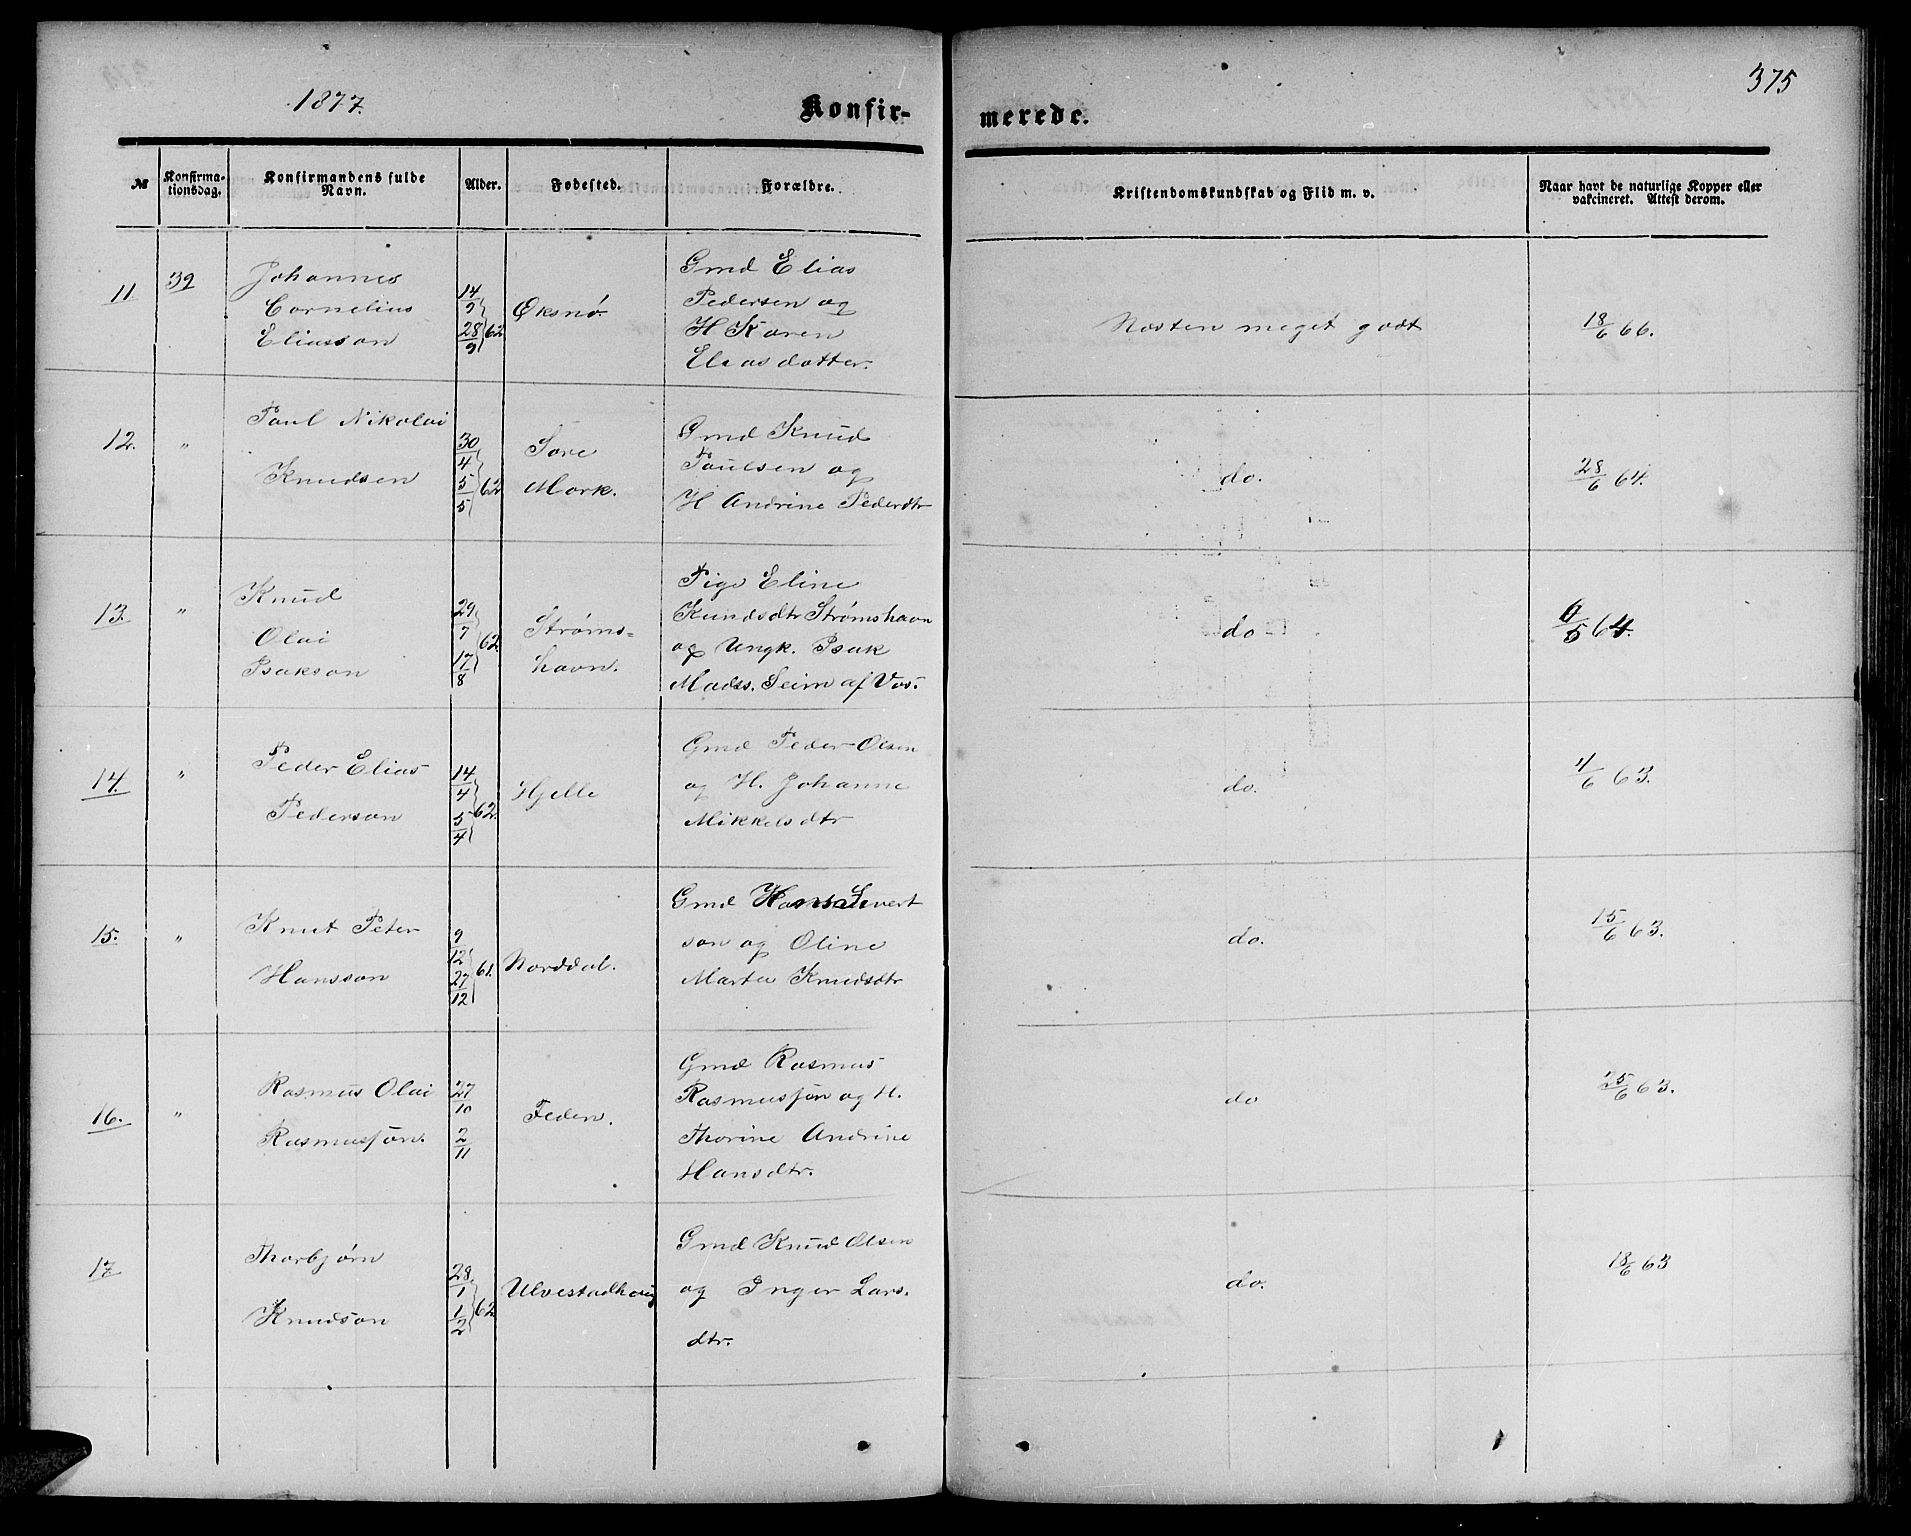 1877.
375
Konfir-
merede.
№ Konfirma-tionsdag. Konfirmandens fulde Navn. Alder. Fødested. Forældre. Kristendomskundskab og Flid m. v. Naar havt de naturlige Kopper eller vakcineret. Attest derom.
11 39 Johannes Cornelius Eliasson 14/9 28/9 62 Øksnø. Gmd Elias Pedersen og H Karen Elias datter. Næsten meget godt 18/6 66.
12. " Paul Nikolai Knudsen 30/4 5/5 62 Søre Mork. Gmd Knud Paulsen og H Andrine Pederdtr do. 28/6 64.
13. " Knud Olai Isakson 29/7 17/8 62 Strøms= havn. Pige Eline Knudsdtr Strømshavn og Ungk. Isak Madss. Seim af Vos. do 6/5 64.
14. " Peder Elias Pederson 14/4 5/4 62. Hjelle Gmd Peder Olsen og H. Johanne Mikkelsdtr do. 4/6 63.
15. " Knut Peter Hansson 9/12 27/12 61. Norddal. Gmd Hans Sivert son og Oline Martea Knudsdtr do. 15/6 63.
16. " Rasmus Olai Rasmusson. 27/10 2/11 Feden. Gmd Rasmus Rasmusson og H. Thorine Andrine Hansdtr. do 25/6 63.
17 Thorbjørn Knudson 28/1 1/2 62 Ulvestadhaug Gmd Knud Olsen og Inger Lars. dtr. do. 18/6 63